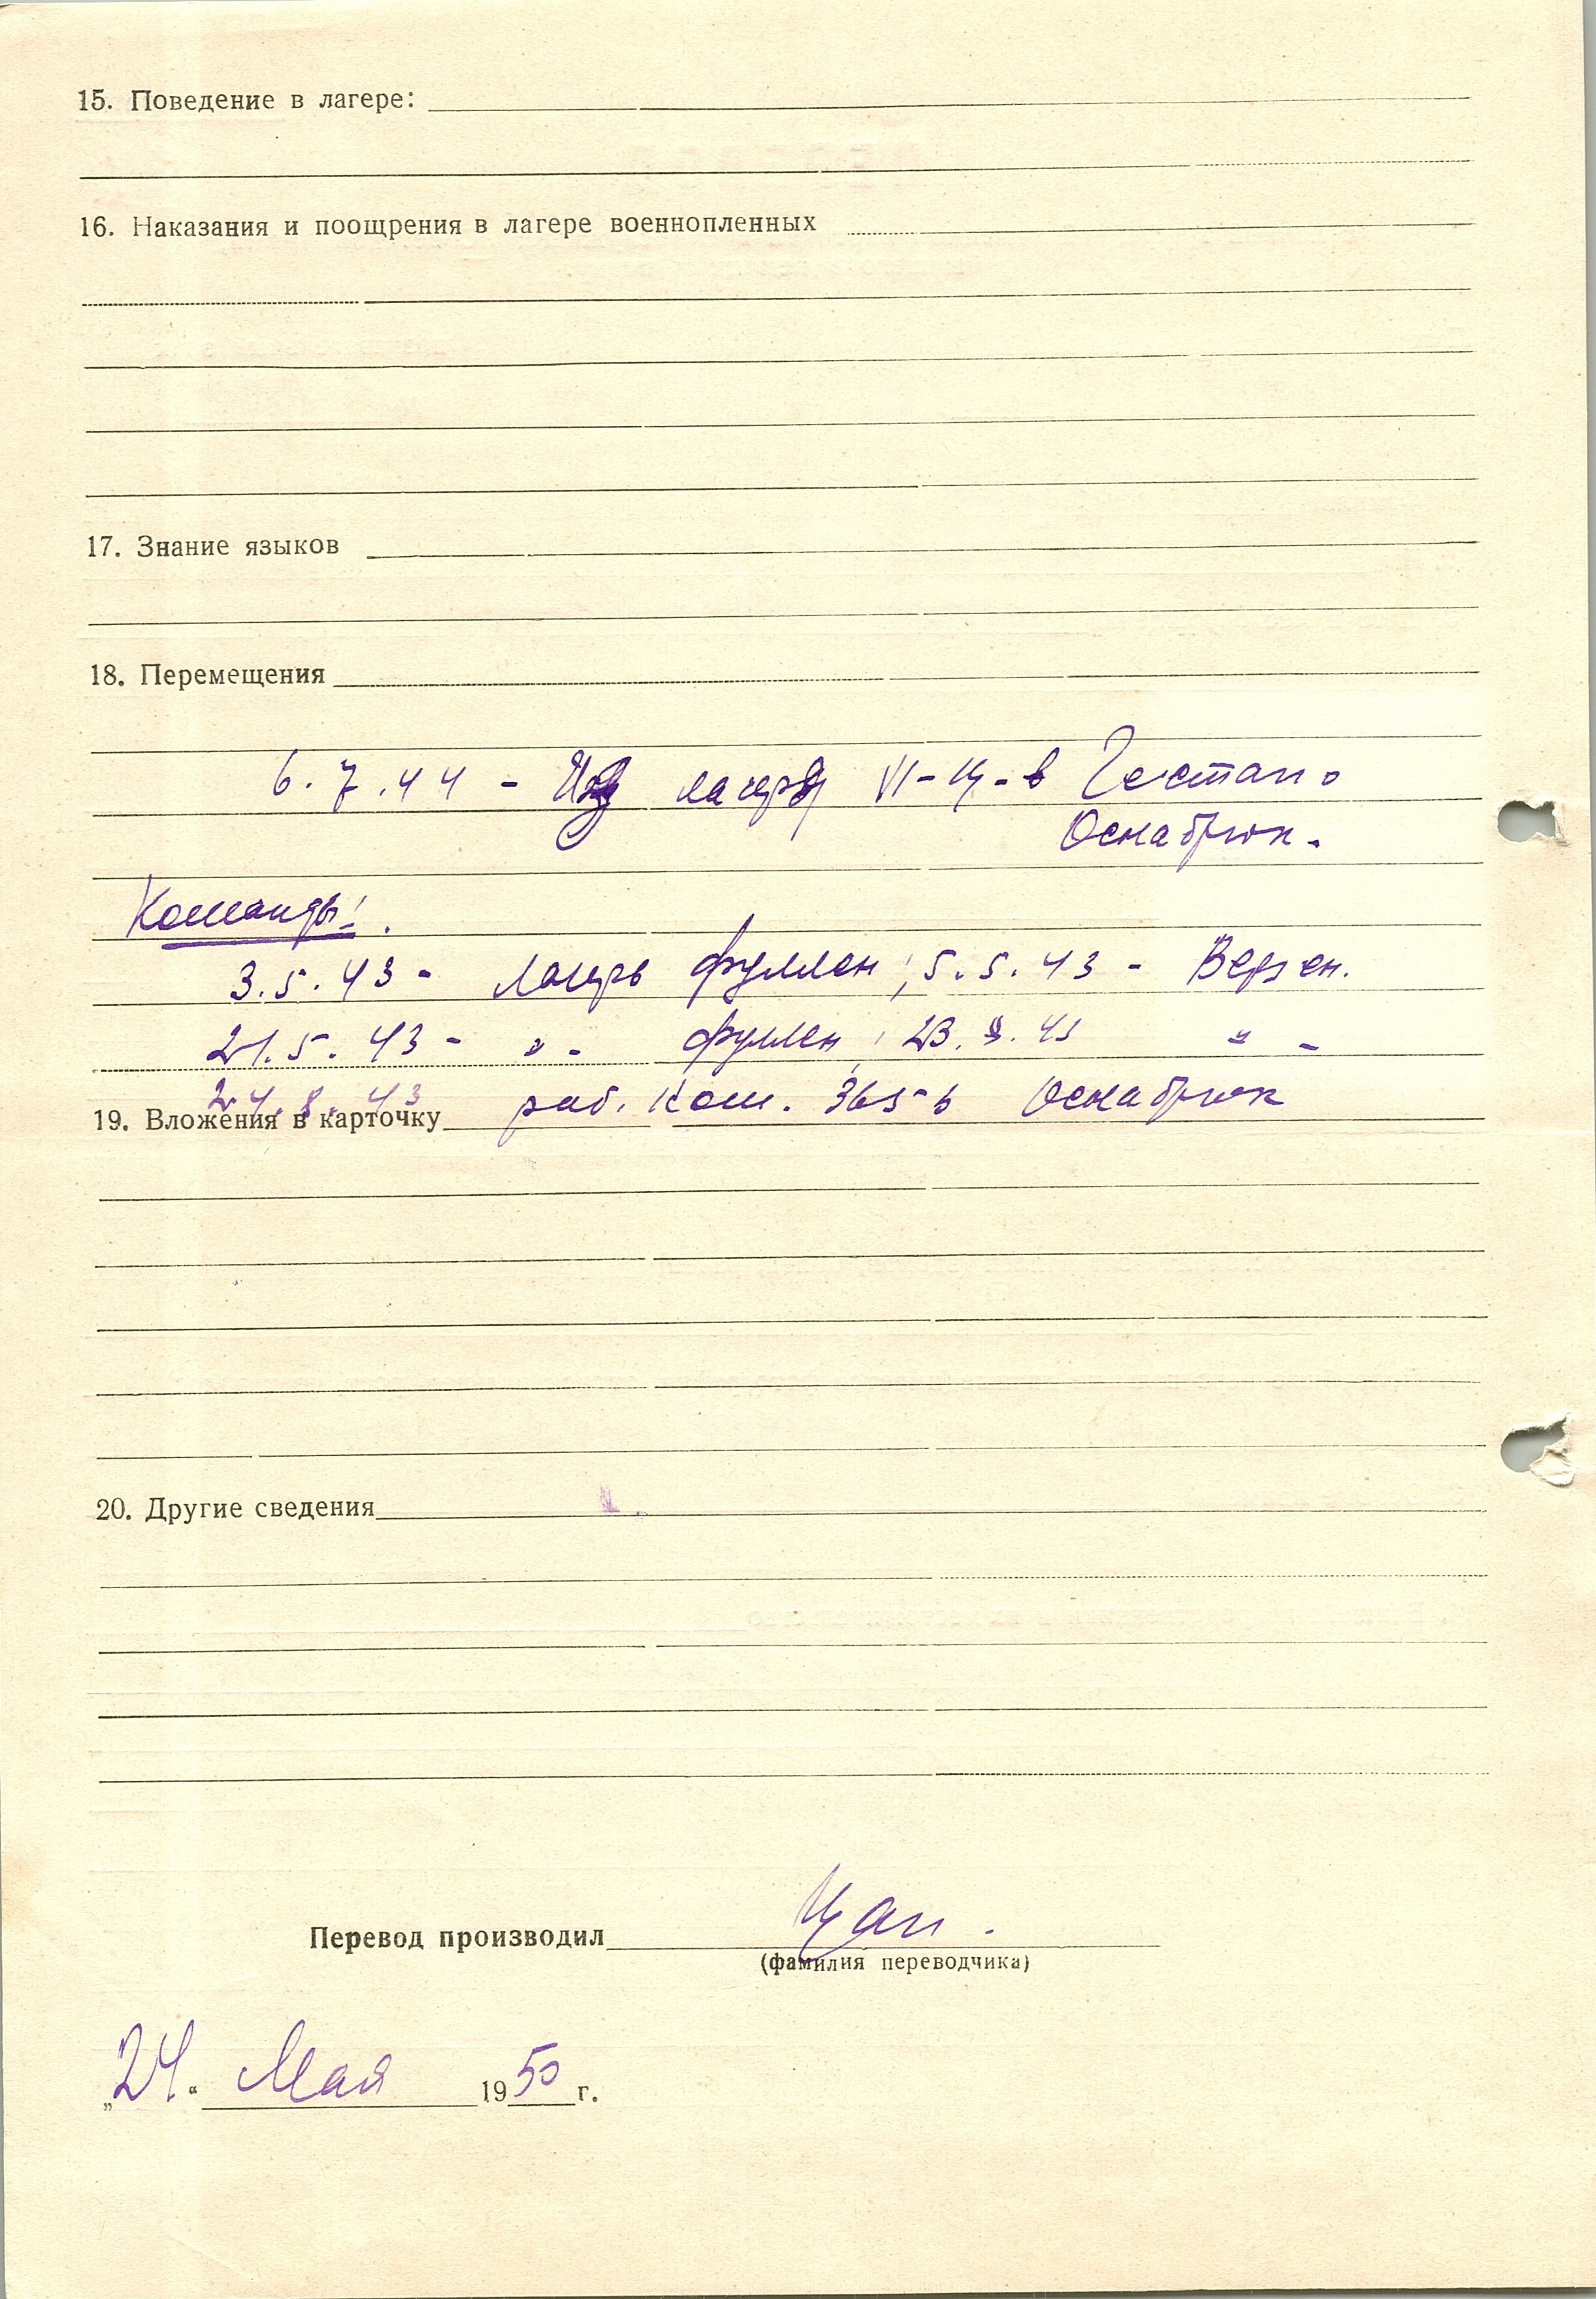 15. Поведение в лагере:
16. Наказания и поощрения в лагере военнопленных
17. Знание языков
18. Перемещения
6.7.44 - Из лагеря VI-Ц - в Гестапо
Оснабрюк.
Команды:
3.5.43 - Лагерь Фуллен; 5.5.43 - Верзен.
21.5.43 - " - Фуллен; 23. 8. 43 " -
24. 8. 43 раб. Ком. 365-b Оснабрюк
19. Вложения в карточку
20. Другие сведения
Перевод производил Цап.
(фамилия переводчика)
„24“ Мая 1950 г.